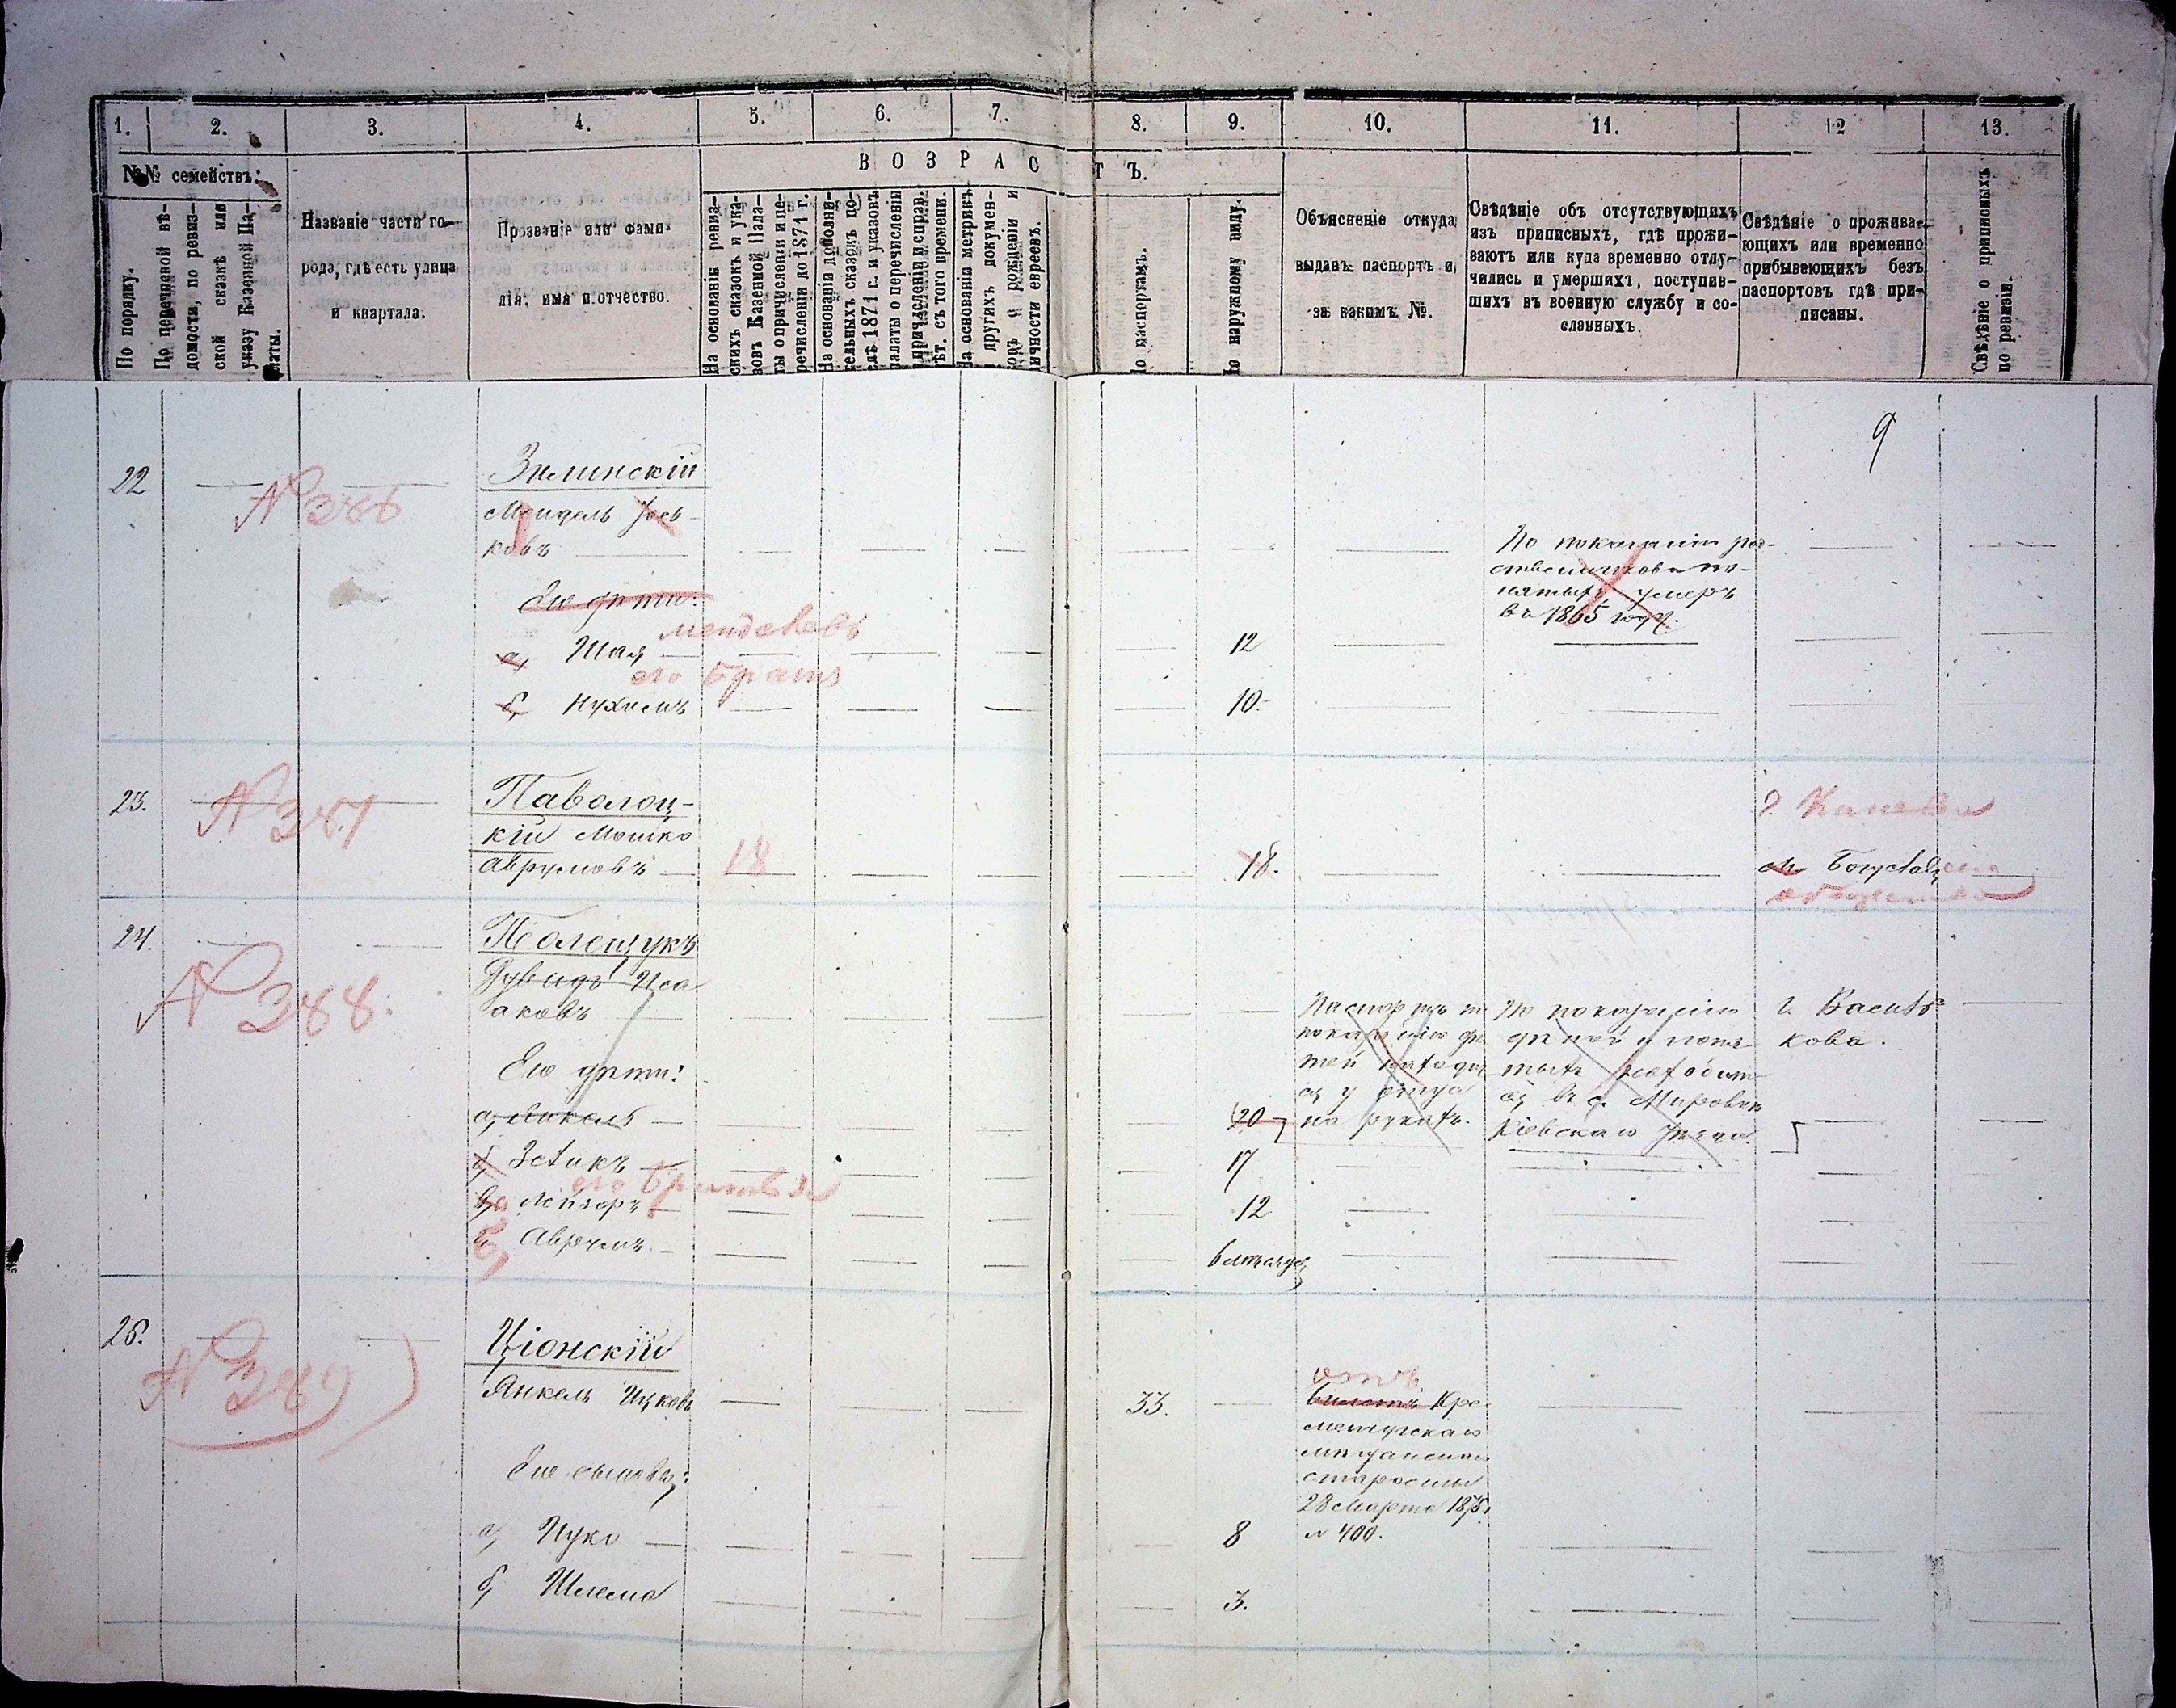 1. 2. 3. 4. 5. 6. 7. 8. 9. 10. 11. 12 13.
№№ семействъ:
В О З Р А С Т Ъ.
По порядку.
По перечневой вѣ-
домости, по ревиз-
ской сказкѣ или
указу Казенной Па-
латы.
Названіе части го-
рода, гдѣ есть улица
и квартала.
Прозваніе или фами-
лія, имя и отчество.
На основаніи ревиз-
скихъ сказокъ и ука-
зовъ Казенной Пала-
ты о причисленіи и пе-
речисленіи до 1871 г.
На основаніи дополни-
тельныхъ сказокъ по-
слѣ 1871 г. и указовъ
палаты о перечисленіи
и причисленіи и справ.
лѣт. съ того времени.
На основаніи метрикъ
и другихъ докумен-
овъ о рожденіи и
ичности евреевъ.
По паспортамъ.
По наружному виду.
Объясненіе откуда
выданъ паспортъ и
за какимъ №.
Свѣдѣніе объ отсутствующихъ
изъ приписныхъ, гдѣ прожи-
ваютъ или куда временно отлу-
чились и умершихъ, поступив-
шихъ въ военную службу и со-
сланныхъ.
Свѣдѣніе о прожива-
ющихъ или временно
прибывающихъ безъ
паспортовъ гдѣ при-
писаны.
Свѣдѣніе о приписныхъ
по ревизіи.
9
22
№ 386
Зилинскій
Мендель Іось-
ковъ
По показанію род-
ственниковъ и по-
нятыхъ, умеръ
въ 1865 году.
Его дѣти:
Менделевъ
а, Шая 12
его братъ
б, Нухимъ 10.
23.
№ 387
Паволоц-
кій Мошко
Аврумовъ 18 18.
г. Канева
м. Богуслав
общества
24.
№ 388.
Полещукъ
Дувидъ Иса-
аковъ
Паспортъ по
показанію дѣ-
тей находит
ся у отца
на рукахъ.
По показанію
дѣтей и поня-
тыхъ находит-
ся въ с. Мировкѣ
Кіевскаго уѣзда.
г. Василь-
кова.
Его дѣти:
20
б, Зеликъ 17
его братья
в, Лейзоръ 12
Аврумъ 6 мѣсяцъ
25.
№ 389
Ціонскій
Янкель Ицковъ 33.
отъ
билетъ Кре-
менчугскаго
мѣщанскаго
старосты
28 Марта 1875 г.
№ 400.
Его сыновья:
а, Ицко 8
б, Шлема 3.